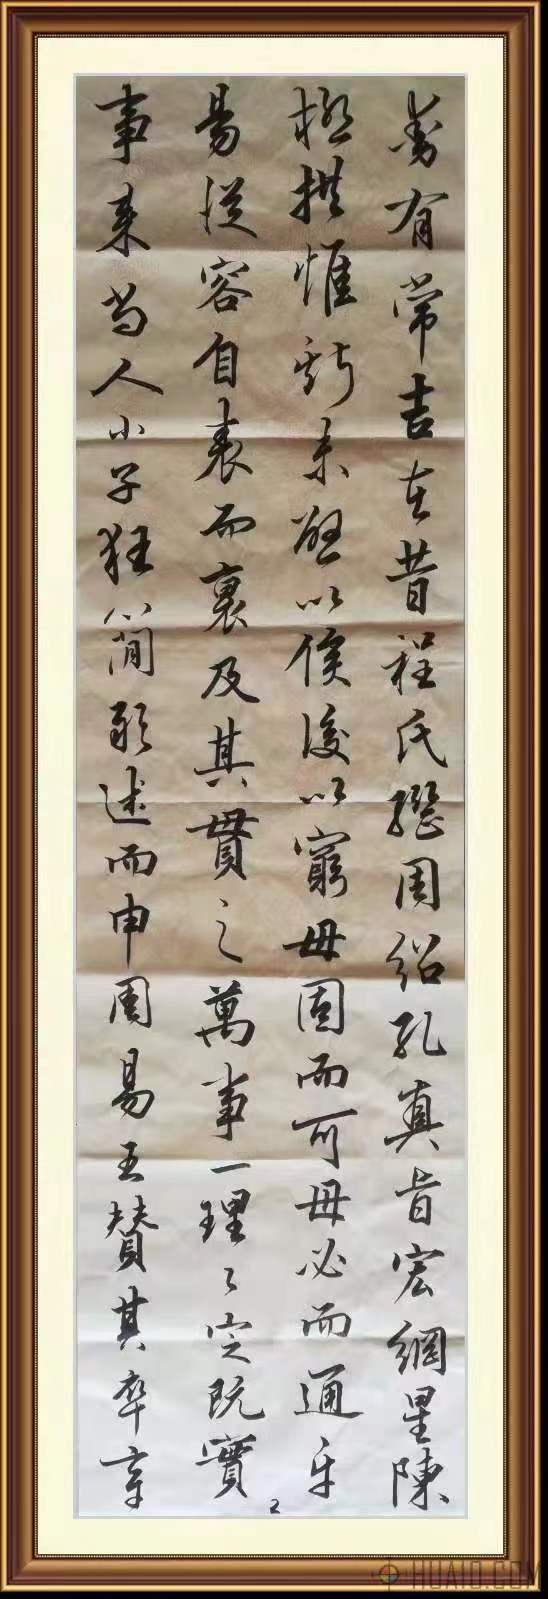 善有常吉在昔程氏繼周紹孔真旨宏綱星陳
極拱惟斯未啟以俟後以窮毋固而可毋必而通平
易從容自表而裏及其貫之萬事一理〻定既實
事來尚人小子狂簡敢述而申周易五贊其卒章
2
HUAID.COM